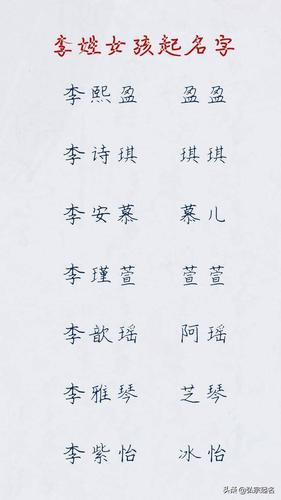 李姓女孩起名字
李熙盈 盈盈
李诗琪 琪琪
李安慕 慕儿
李瑾萱 萱萱
李歆瑶 阿瑶
李雅琴 芝琴
李紫怡 冰怡
头条@弘宗起名